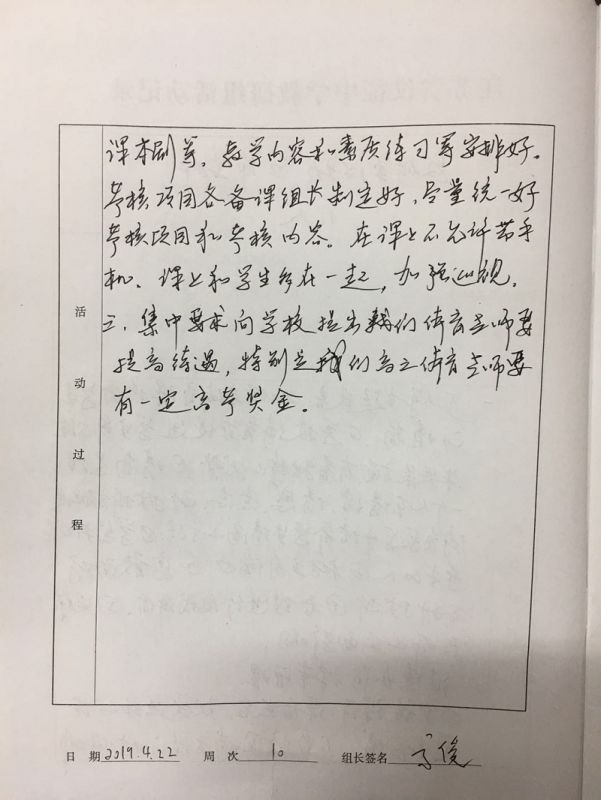 课本刷等，教学内容和素质练习等安排好。
考核项目各备课组长制定好，尽量统一好
考核项目和考核内容。在课上不允许带手
机、课上和学生多在一起，加强巡视。
三、集中要求向学校提出我们体育老师要
提高待遇，特别是我们高三体育老师要
有一定高考奖金。
活动过程
日 期 2019.4.22 周 次 10 组长签名